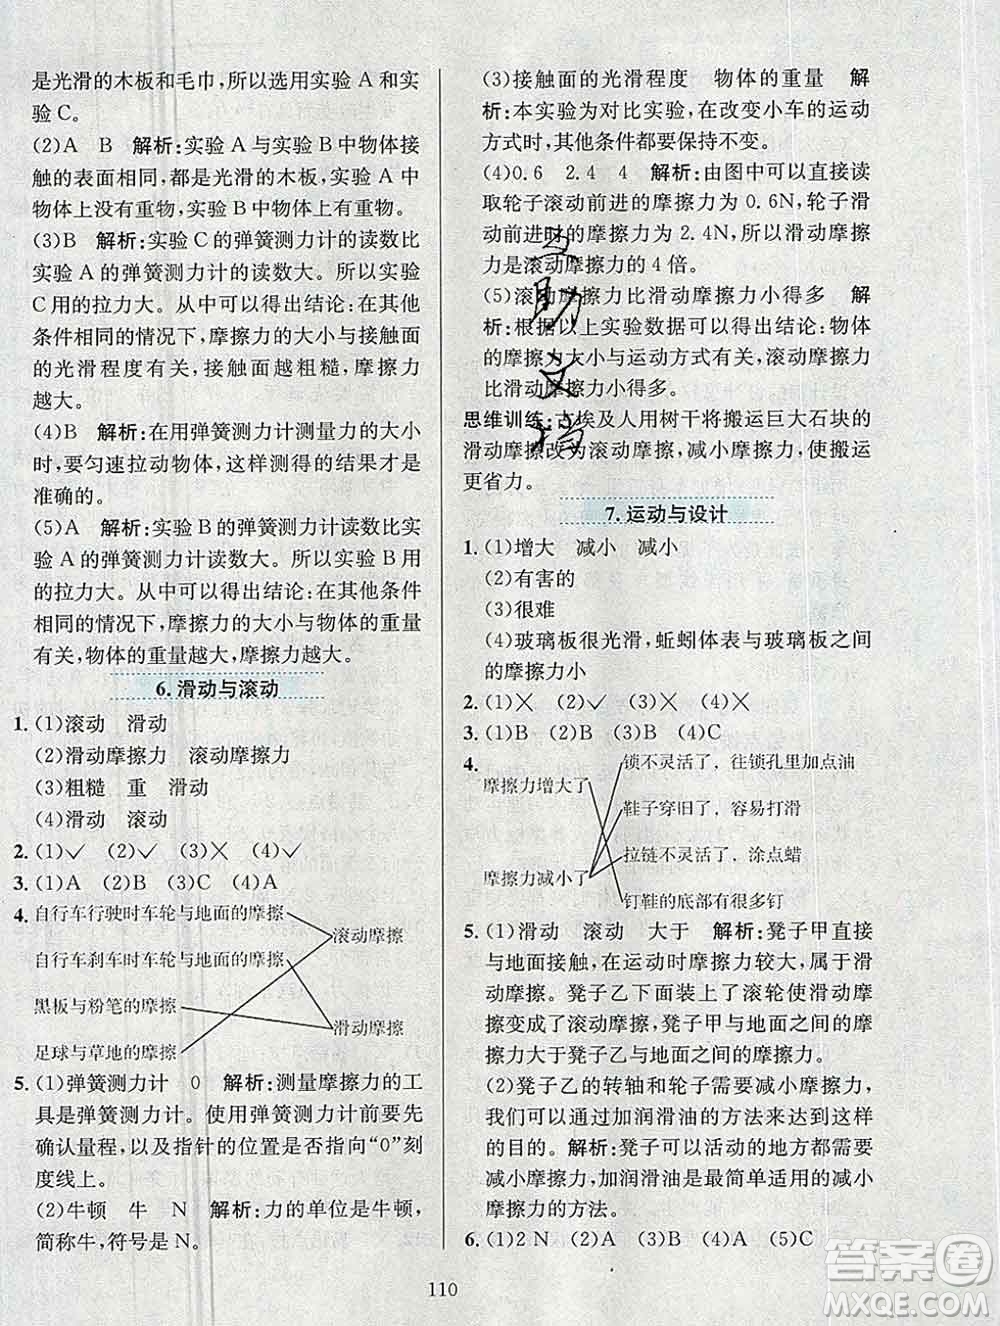 是光滑的木板和毛巾，所以选用实验 A 和实
验 C。
(2)A　B　解析:实验 A 与实验 B 中物体接
触的表面相同，都是光滑的木板，实验 A 中
物体上没有重物，实验 B 中物体上有重物。
(3)B　解析:实验 C 的弹簧测力计的读数比
实验 A 的弹簧测力计的读数大。所以实验
C 用的拉力大。从中可以得出结论:在其他
条件相同的情况下，摩擦力的大小与接触面
的光滑程度有关，接触面越粗糙，摩擦力
越大。
(4)B　解析:在用弹簧测力计测量力的大小
时，要匀速拉动物体，这样测得的结果才是
准确的。
(5)A　解析:实验 B 的弹簧测力计读数比实
验 A 的弹簧测力计读数大。所以实验 B 用
的拉力大。从中可以得出结论:在其他条件
相同的情况下，摩擦力的大小与物体的重量
有关，物体的重量越大，摩擦力越大。
6. 滑动与滚动
1. (1)滚动　滑动
(2)滑动摩擦力　滚动摩擦力
(3)粗糙　重　滑动
(4)滑动　滚动
2. (1)✓　(2)✓　(3)✕　(4)✓
3. (1)A　(2)B　(3)C　(4)A
4. 自行车行驶时车轮与地面的摩擦
滚动摩擦
自行车刹车时车轮与地面的摩擦
黑板与粉笔的摩擦
滑动摩擦
足球与草地的摩擦
5. (1)弹簧测力计　0　解析:测量摩擦力的工
具是弹簧测力计。使用弹簧测力计前要先
确认量程，以及指针的位置是否指向“0”刻
度线上。
(2)牛顿　牛　N　解析:力的单位是牛顿，
简称牛，符号是 N。
(3)接触面的光滑程度　物体的重量　解
析:本实验为对比实验，在改变小车的运动
方式时，其他条件都要保持不变。
(4)0.6　2.4　4　解析:由图中可以直接读
取轮子滚动前进的摩擦力为 0.6N，轮子滑
动前进的摩擦力为 2.4N，所以滑动摩擦
力是滚动摩擦力的 4 倍。
(5)滚动摩擦力比滑动摩擦力小得多　解
析:根据以上实验数据可以得出结论:物体
的摩擦力大小与运动方式有关，滚动摩擦力
比滑动摩擦力小得多。
思维训练:古埃及人用树干将搬运巨大石块的
滑动摩擦改为滚动摩擦，减小摩擦力，使搬运
更省力。
7. 运动与设计
1. (1)增大　减小　减小
(2)有害的
(3)很难
(4)玻璃板很光滑，蚯蚓体表与玻璃板之间
的摩擦力小
2. (1)✕　(2)✓　(3)✕　(4)✕
3. (1)B　(2)B　(3)B　(4)C
4.
锁不灵活了，往锁孔里加点油
摩擦力增大了
鞋子穿旧了，容易打滑
拉链不灵活了，涂点蜡
摩擦力减小了
钉鞋的底部有很多钉
5. (1)滑动　滚动　大于　解析:凳子甲直接
与地面接触，在运动时摩擦力较大，属于滑
动摩擦。凳子乙下面装上了滚轮使滑动摩
擦变成了滚动摩擦，凳子甲与地面之间的摩
擦力大于凳子乙与地面之间的摩擦力。
(2)凳子乙的转轴和轮子需要减小摩擦力，
我们可以通过加润滑油的方法来达到这样
的目的。解析:凳子可以活动的地方都需要
减小摩擦力，加润滑油是最简单适用的减小
摩擦力的方法。
6. (1)2 N　(2)A　(3)B　(4)A　(5)C
110
答案圈
MXQE.COM